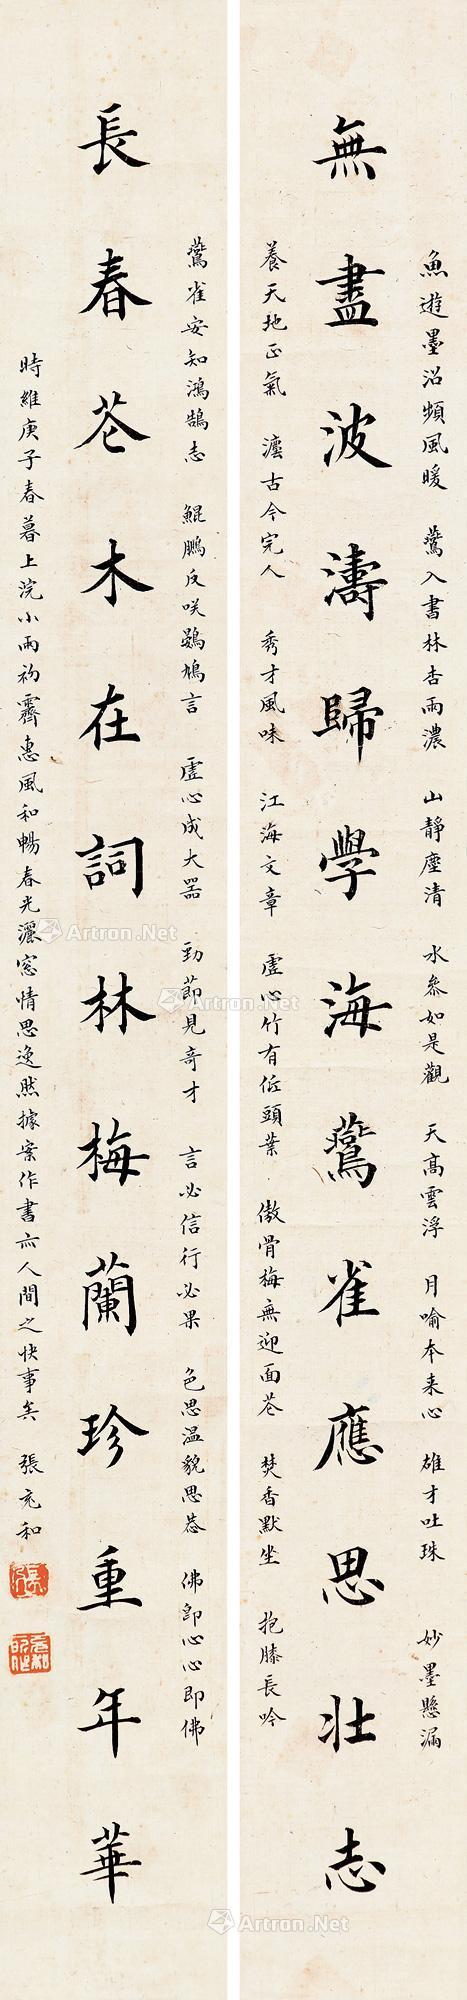 魚遊墨沼頻風暖　鶯入書林杏雨濃　山靜塵清　水參如是觀　天高雲浮　月喻本来心　雄才吐珠　妙墨懸漏
無盡波濤歸學海鶯雀應思壯志
養天地正氣　瀍古今完人　秀才風味　江海文章　虛心竹有低頭葉　傲骨梅無迎面花　焚香默坐　抱膝長吟
鶯雀安知鴻鵠志　鯤鵬反咲鷃鳩言　虛心成大器　勁節見奇才　言必信行必果　色思温貌思恭　佛即心心即佛
長春花木在詞林梅蘭珍重年華
時維庚子春暮上浣小雨初霽惠風和暢春光灑窓情思逸然據案作書亦人間之快事矣　張充和
張
充和
Artron.Net
Artron.Net
Artron.Net
Artron.Net
Artron.Net